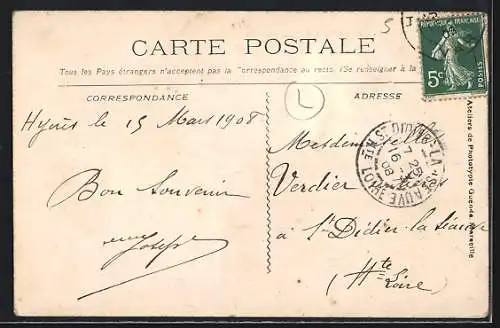 5
CARTE POSTALE
Tous les Pays étrangers n'acceptent pas la Correspondance au recto. (Se renseigner à la
CORRESPONDANCE
ADRESSE
L
Hyères le 15 Mars 1908
Bon Souvenir
Joseph
Mesdemoiselles
Verdier
à St Didier la Séauve
(Hte Loire)
RÉPUBLIQUE FRANÇAISE
5c
POSTES
ST DIDIER-LA-SÉAUVE
HTE LOIRE
16
08
Ateliers de Phototypie Guende, Marseille